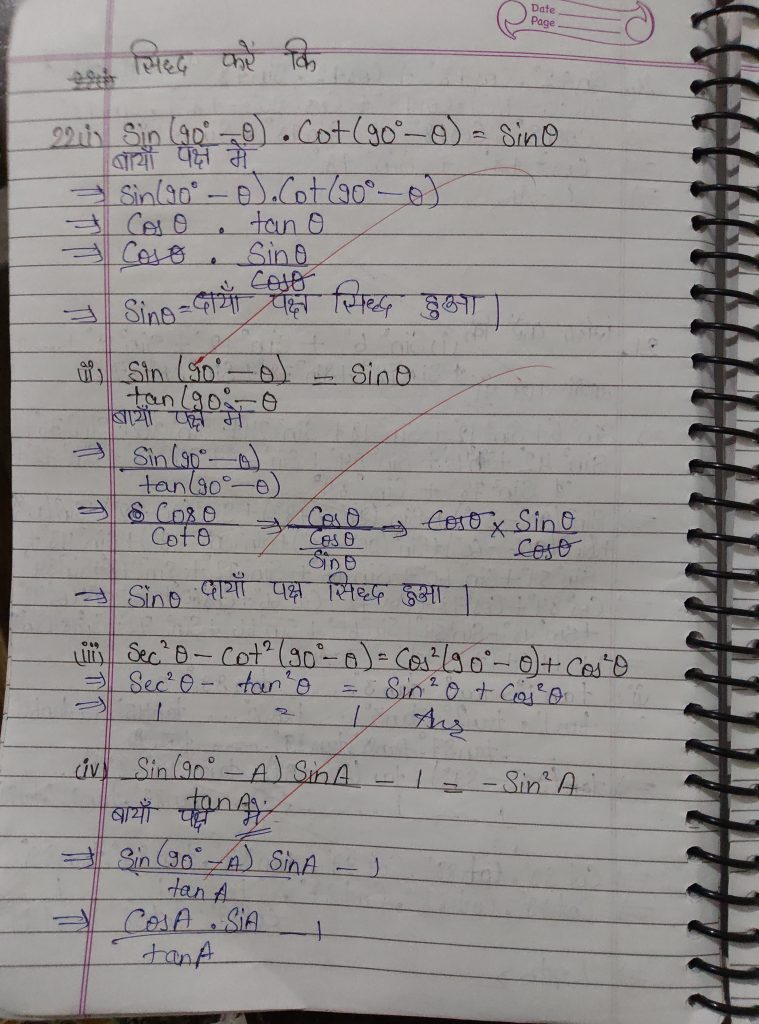 Date
Page
सिद्ध करें कि
22(i) Sin(90° – θ) . Cot(90° – θ) = Sinθ
बायाँ पक्ष में
⇒ Sin(90° – θ).Cot(90° – θ)
⇒ Cosθ . tanθ
⇒ Cosθ . Sinθ
Cosθ
⇒ Sinθ = दायाँ पक्ष सिद्ध हुआ |
(ii) Sin(90° – θ) – Sinθ
tan(90° – θ
बायाँ पक्ष में
⇒ Sin(90° – θ)
tan(90° – θ)
⇒ Cosθ ⇒ Cosθ ⇒ Cosθ × Sinθ
Cotθ Cosθ Cosθ
Sinθ
⇒ Sinθ दायाँ पक्ष सिद्ध हुआ |
(iii) Sec²θ – Cot²(90° – θ) = Cos²(90° – θ) + Cos²θ
⇒ Sec²θ – tan²θ = Sin²θ + Cos²θ
⇒ 1 = 1 Ans
(iv) Sin(90° – A) SinA – 1 = – Sin²A
tanA
बायाँ पक्ष में
⇒ Sin(90° – A) SinA – 1
tanA
⇒ CosA . SiA – 1
tanA